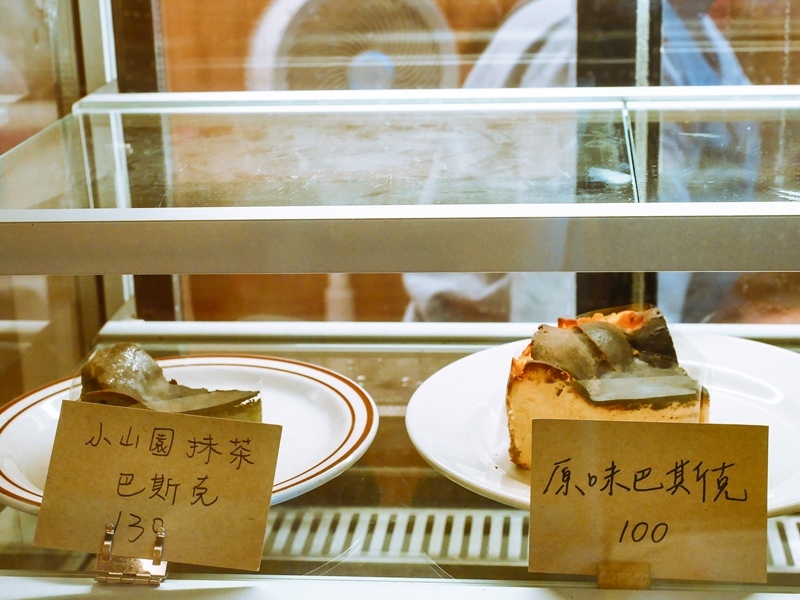 小山園 抹茶
巴斯克
130
原味巴斯克
100